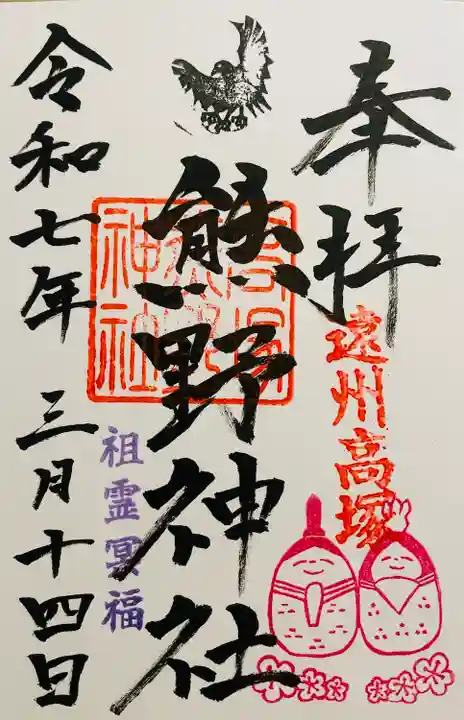 奉拝
遠州高塚
熊野神社
高塚
熊野
神社
祖霊冥福
令和七年 三月十四日